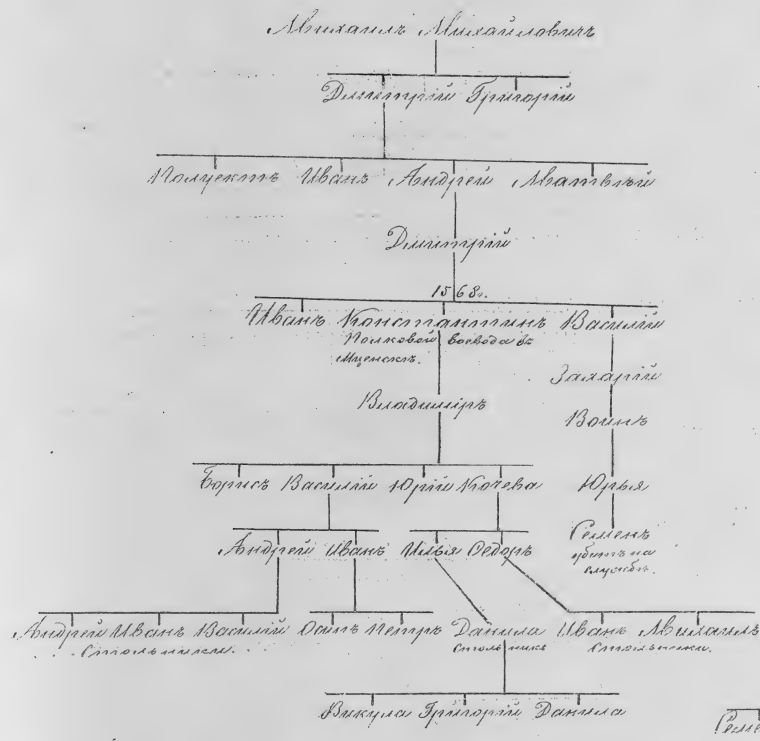 Михаилъ Михайловичъ
Димитрій Григорій
Полуектъ Иванъ Андрей Матвѣй
Дмитрій
1568г.
Иванъ Константинъ Василій
Полковой воевода въ
Мценскѣ.
Захарій
Владиміръ
Воинъ
Борисъ Василій Юрій Кочева Юрья
Андрей Иванъ Илья Ѳедоръ Семенъ
убитъ на
службѣ.
Андрей Иванъ Василій Осипъ Петръ Данила Иванъ Михаилъ
Стольники. Стольникъ Стольники.
Викула Григорій Данила